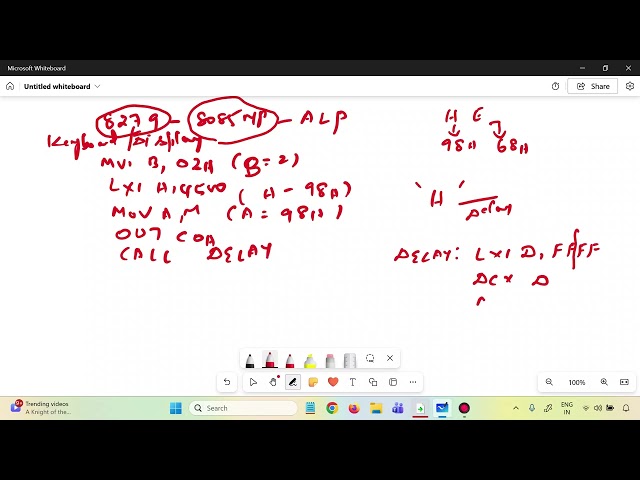 Microsoft Whiteboard
Untitled whiteboard
Share
8279 - 8085 MP - ALP
Keyboard/Display
MVI B, 02H (B=2)
LXI H, 4500 (H - 98H)
MOV A, M (A = 98H)
OUT C0H
CALL DELAY
H E
98H 68H
'H'
Delay
DELAY: LXI D, FFFF
DCX D
100%
Trending videos
A Knight of the...
Search
ENG
IN